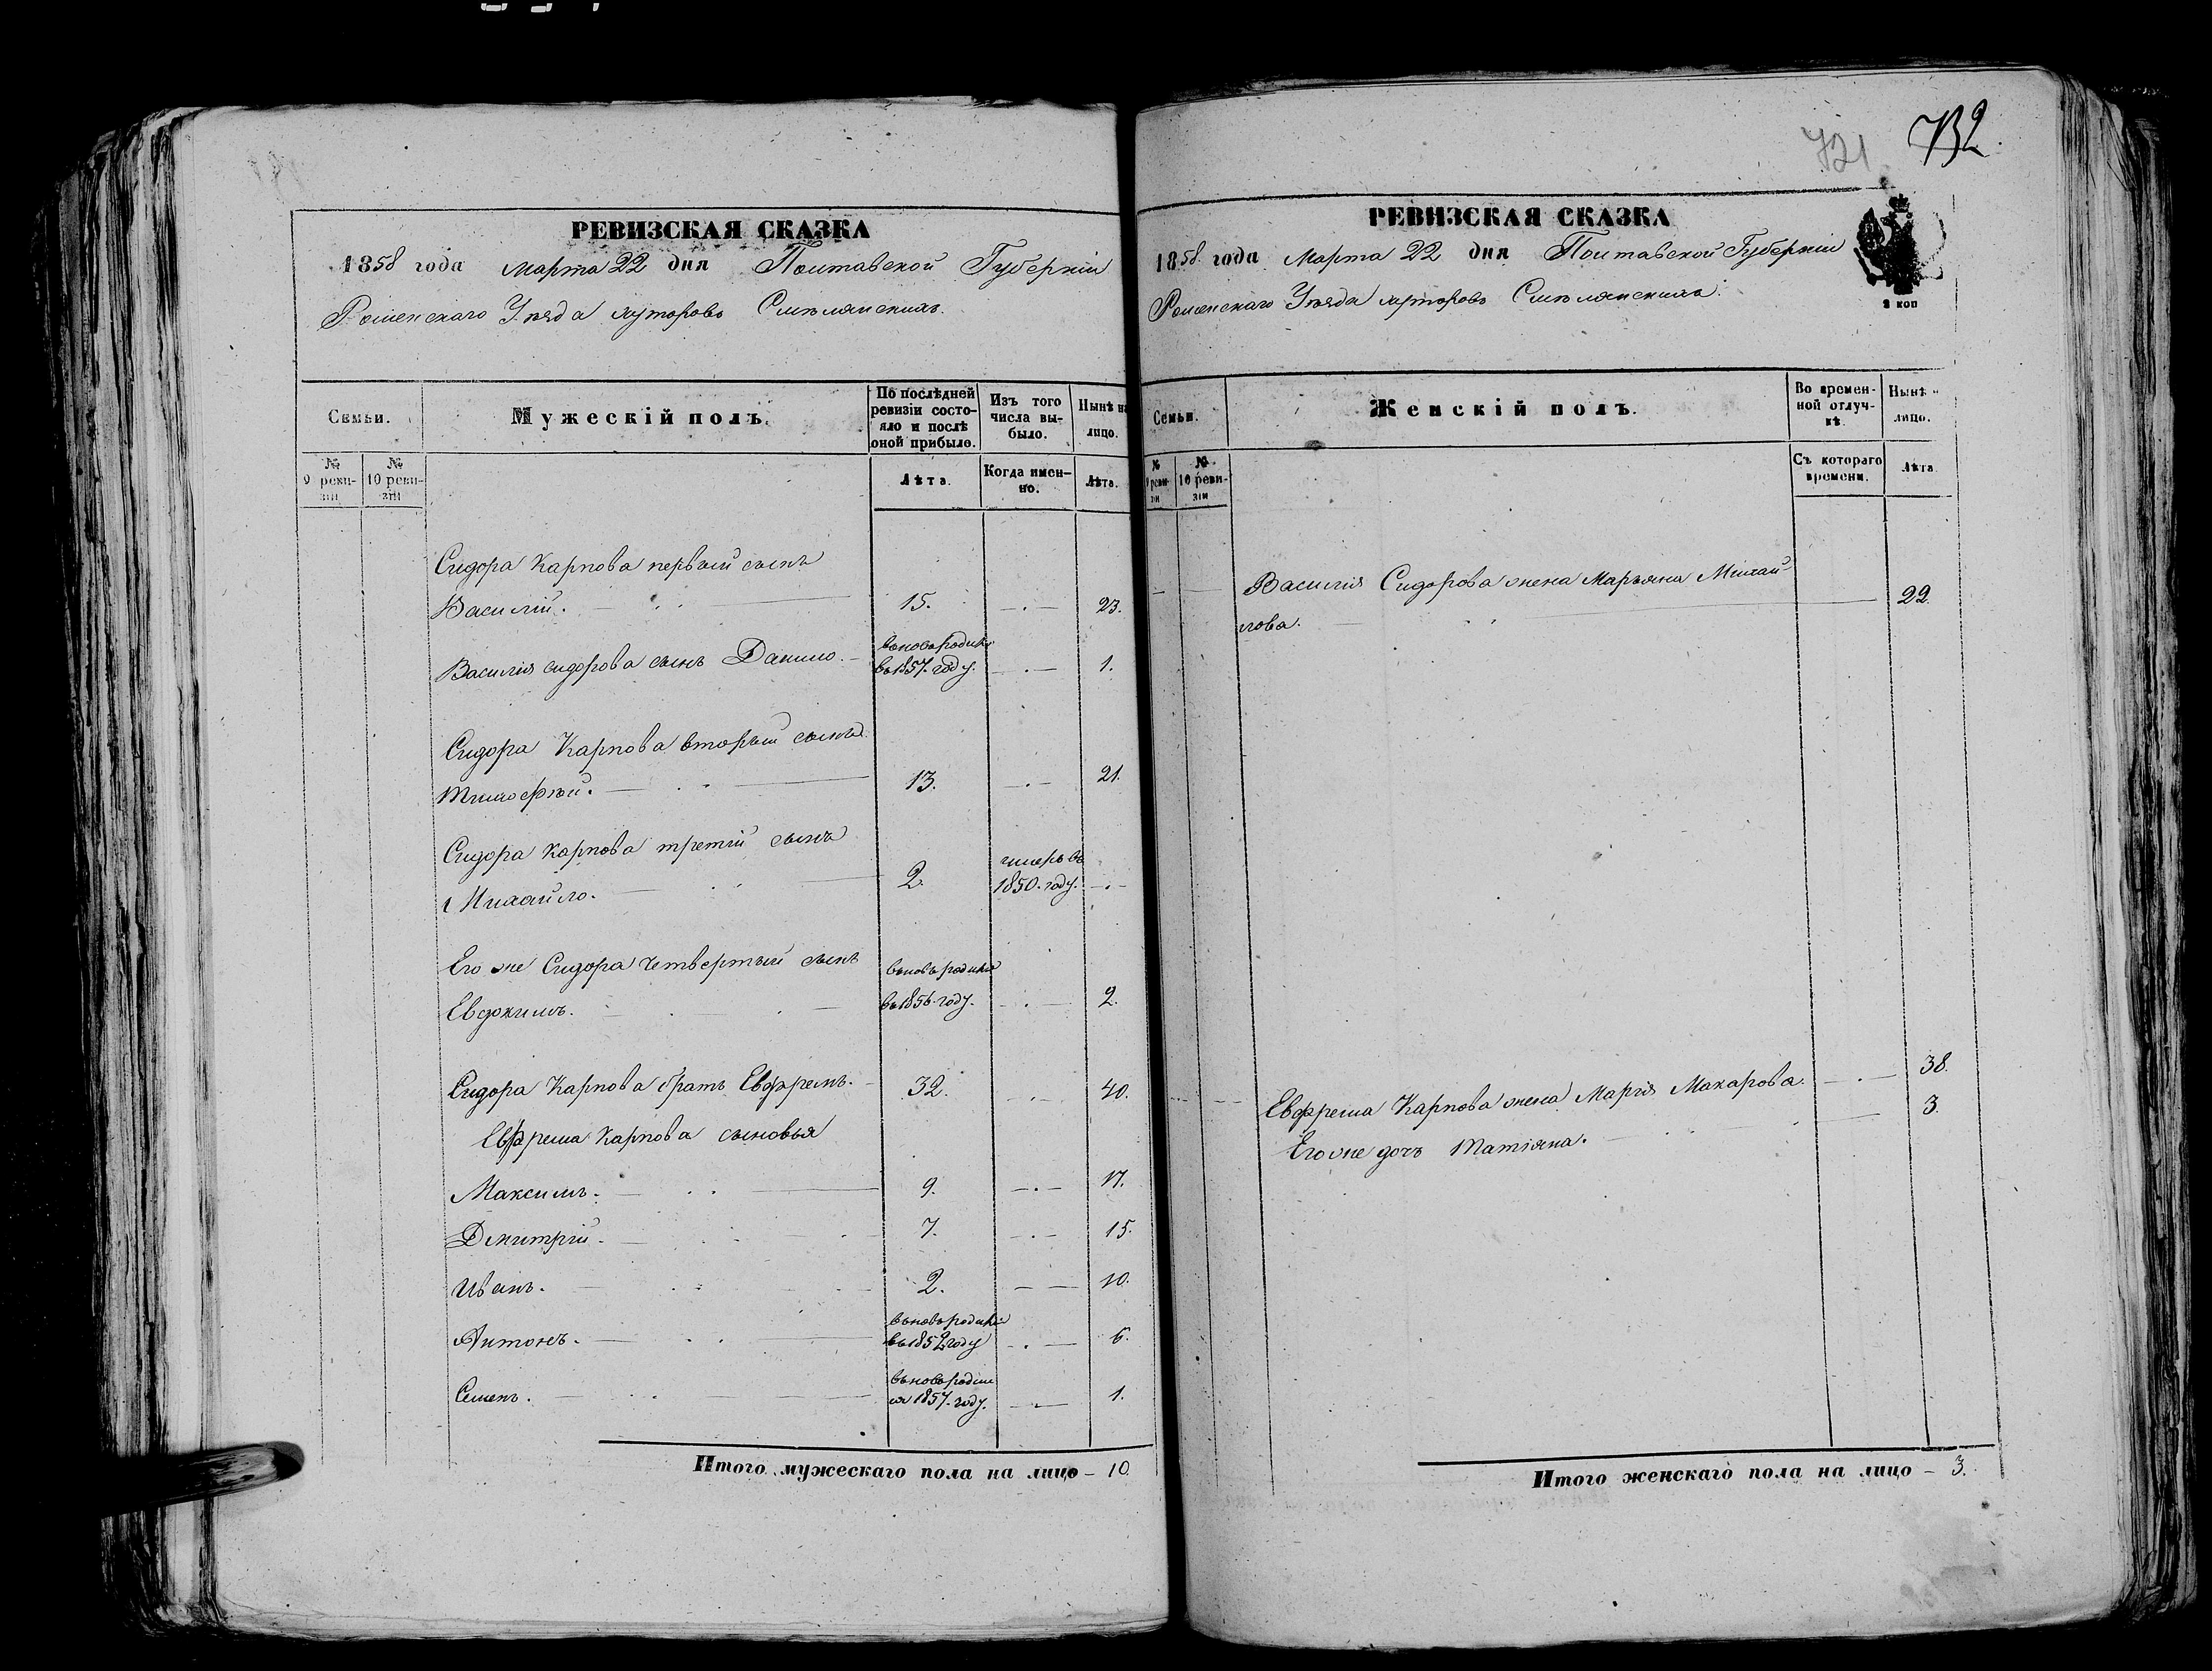 РЕВИЗСКАЯ СКАЗКА
1858 года марта 22 дня Полтавской Губерніи
Роменскаго Уѣзда хуторовъ Смѣлянскихъ.
Семьи.
Мужескій полъ.
По послѣдней ревизіи состо-
яло и послѣ оной прибыло.
Изъ того числа вы-
было.
Нынѣ на лицо.
№ 9 реви-
зіи
№ 10 реви-
зіи
Лѣта.
Когда имен-
но.
Лѣта.
Сидора Карпова первый сынъ
Василій. 15. 23.
Василія сидорова сынъ Данило. вновь родился
въ 1857. году. 1.
Сидора Карпова вторый сынъ
Тимофѣй. 13. 21.
Сидора Карпова третій сынъ
Михайло. 2. умеръ въ
1850. году.
Его же Сидора четвертый сынъ вновь родился
Евдокимъ. въ 1856 году. 2.
Сидора Карпова братъ Евфремъ. 32. 40.
Евфрема Карпова сыновья
Максимъ. 9. 17.
Дмитрій. 7. 15.
Иванъ. 2. 10.
вновь родился
Антонъ. въ 1852 году 6.
вновь родил
Семенъ. ся 1857. году. 1.
Итого мужескаго пола на лицо – 10.
721 732
РЕВИЗСКАЯ СКАЗКА
1858 года Марта 22 дня Полтавской Губерніи
Роменскаго Уѣзда хуторовъ Смѣлянскихъ.
2 коп
Семьи.
Женскій полъ.
Во времен-
ной отлуч-
кѣ.
Нынѣ на
лицо.
№ 9 реви-
зіи
№ 10 реви-
зіи
Съ котораго
времени.
Лѣта
Василія Сидорова жена Марьяна Михай-
лова. 22.
Евфрема Карпова жена Марія Макарова. 38.
Его же дочь Татіяна. 3.
Итого женскаго пола на лицо – 3.